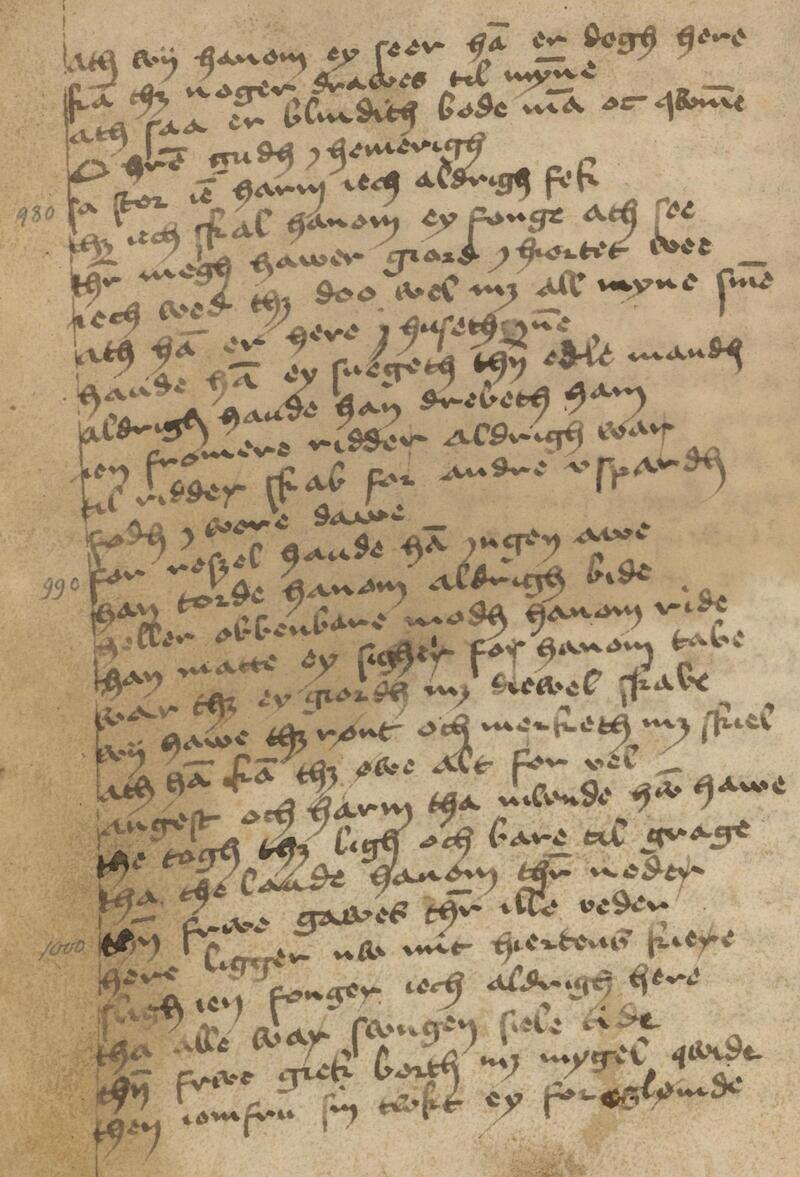 ath wij hanom ey seer hā er dogh here
kā thz noger drawes til mÿne
ath saa er blindith bode mā oc qwīne
O hrē gudh j hemerigh
980 sa stor iē harm iech aldrigh fek
thz iech skal hanom ey fonge ath see
thr̄ megh hawer giord j hiortet wee
iech wed thz doo wel mz all myne sīne
ath hā er here j huseth īne
haude hā ey sueget thn̄ edle mandh
aldrigh haude han drebeth ham
ien fromere ridder aldrigh war
til ridder skab for andre vspardh
fodh j wore dawe
for reszel haude hā jngen awe
990 han torde hanom aldrigh bide
heller obbenbare modh hanom ride
han matte ey sigher for hanom tabe
war thz ey giordh mz diewel skabe
wij hawe thz rønt och merketh mz skiel
ath hā kā thz øwe alt for vel
angest och harm tha mwnde hw̄ hawe
the togh thz ligh och bare til grawe
tha the laude hanom thr̄ neder
thn̄ frwe gawes thr̄ ille veder
1000 here ligger nw mit hiertens kiere
sligh ien fonger iech aldrigh here
tha alle war swngen siele tide
thn̄ frwe giek borth mz mygel qwide
then iomfru sin twkt ey forglømde